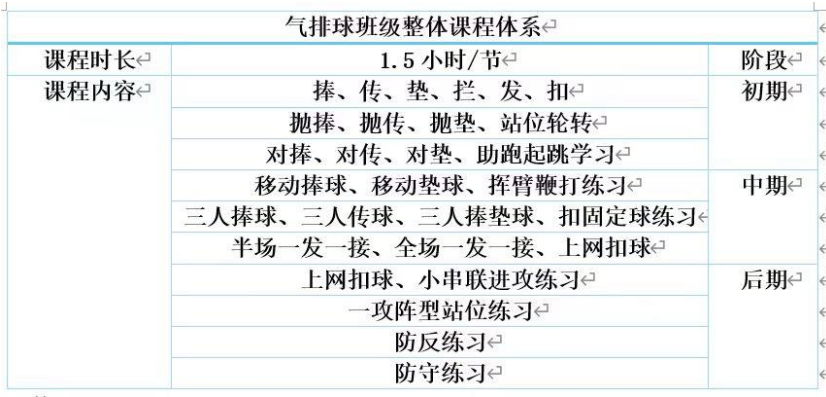 气排球班级整体课程体系
课程时长 1.5小时/节 阶段
课程内容 捧、传、垫、拦、发、扣 初期
抛捧、抛传、抛垫、站位轮转
对捧、对传、对垫、助跑起跳学习
移动捧球、移动垫球、挥臂鞭打练习 中期
三人捧球、三人传球、三人捧垫球、扣固定球练习
半场一发一接、全场一发一接、上网扣球
上网扣球、小串联进攻练习 后期
一攻阵型站位练习
防反练习
防守练习